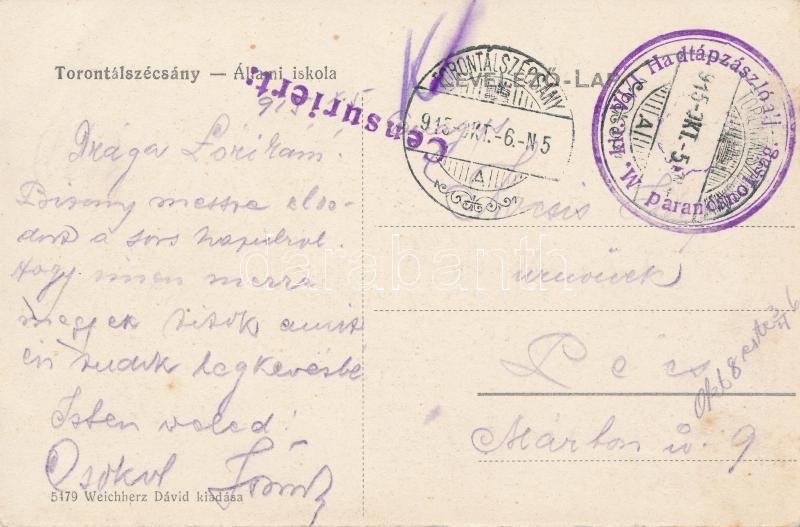 Torontálszécsány — Állami iskola
LEVELEZŐ-LAP
Censuriert:
TORONTÁLSZÉCSÁNY
915-OKT.-6.-N5
A
915-OKT.-5
A
Hadtápzászlóalj
parancsnokság
Drága Lórikám!
Bizony messze elso-
dort a sors
Hogy innen merre
megyek titok, amit
én tudok legkevésbé
Isten veled!
Csókol
Pécs
Márton u. 9
Okt 8 este
5479 Weichherz Dávid kiadása
darabanth